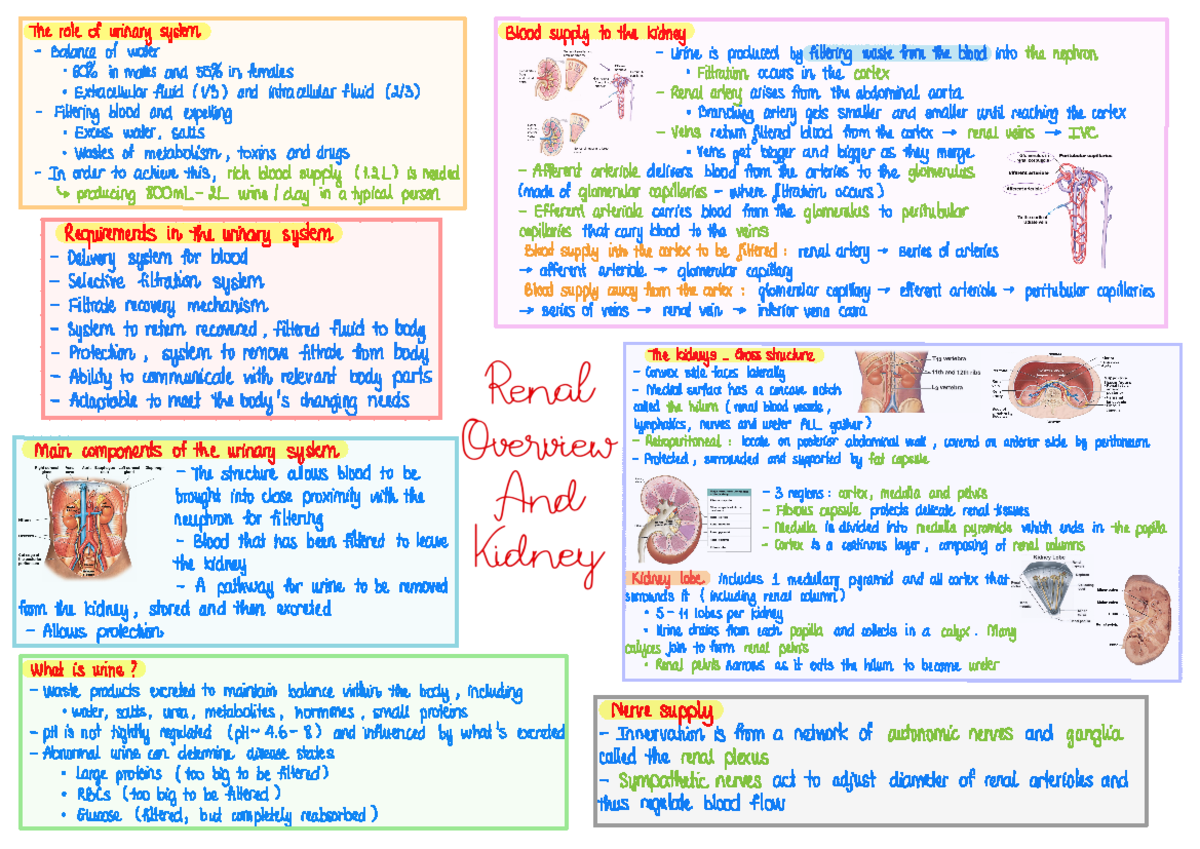 The role of urinary system
- Balance of water
• 60% in males and 55% in females
• Extracellular fluid (1/3) and intracellular fluid (2/3)
- Filtering blood and expelling
• Excess water, salts
• Wastes of metabolism, toxins and drugs
- In order to achieve this, rich blood supply (1.2L) is needed
↳ producing 800mL - 2L urine / day in a typical person
Requirements in the urinary system
- Delivery system for blood
- Selective filtration system
- Filtrate recovery mechanism
- System to return recovered, filtered fluid to body
- Protection, system to remove filtrate from body
- Ability to communicate with relevant body parts
- Adaptable to meet the body's changing needs
Main components of the urinary system
- The structure allows blood to be
brought into close proximity with the
neuphron for filtering
- Blood that has been filtered to leave
the kidney
- A pathway for urine to be removed
from the kidney, stored and then excreted
- Allows protection
What is urine?
- Waste products excreted to maintain balance within the body, including
• water, salts, urea, metabolites, hormones, small proteins
- pH is not tightly regulated (pH ~ 4.6 - 8) and influenced by what's excreted
- Abnormal urine can determine disease states
• Large proteins (too big to be filtered)
• RBCs (too big to be filtered)
• Glucose (filtered, but completely reabsorbed)
Renal
Overview
And
Kidney
Blood supply to the kidney
- Urine is produced by filtering waste from the blood into the nephron
• Filtration occurs in the cortex
- Renal artery arises from the abdominal aorta
• Branching artery gets smaller and smaller until reaching the cortex
- Veins return filtered blood from the cortex → renal veins → IVC
• Veins get bigger and bigger as they merge
- Afferent arteriole delivers blood from the arteries to the glomerulus
(made of glomerular capillaries - where filtration occurs)
- Efferent arteriole carries blood from the glomerulus to peritubular
capillaries that carry blood to the veins
Blood supply into the cortex to be filtered: renal artery → series of arteries
→ afferent arteriole → glomerular capillary
Blood supply away from the cortex: glomerular capillary → efferent arteriole → peritubular capillaries
→ series of veins → renal vein → inferior vena cava
Peritubular capillaries
Efferent arteriole
Afferent arteriole
The kidneys - Gross structure
- Convex side faces laterally
- Medial surface has a concave notch
called the hilum (renal blood vessels,
lymphatics, nerves and ureter ALL gather)
- Retroperitoneal: locate on posterior abdominal wall, covered on anterior side by peritoneum
- Protected, surrounded and supported by fat capsule
T12 vertebra
11th and 12th ribs
L3 vertebra
- 3 regions: cortex, medulla and pelvis
- Fibrous capsule protects delicate renal tissues
- Medulla is divided into medulla pyramids which ends in the papilla
- Cortex is a continous layer, composing of renal columns
Kidney lobe includes 1 medullary pyramid and all cortex that
surrounds it (including renal column)
• 5 - 11 lobes per kidney
• Urine drains from each papilla and collects in a calyx. Many
calyces join to form renal pelvis
• Renal pelvis narrows as it exits the hilum to become ureter
Kidney Lobe
Nerve supply
- Innervation is from a network of autonomic nerves and ganglia
called the renal plexus
- Sympathetic nerves act to adjust diameter of renal arterioles and
thus regulate blood flow